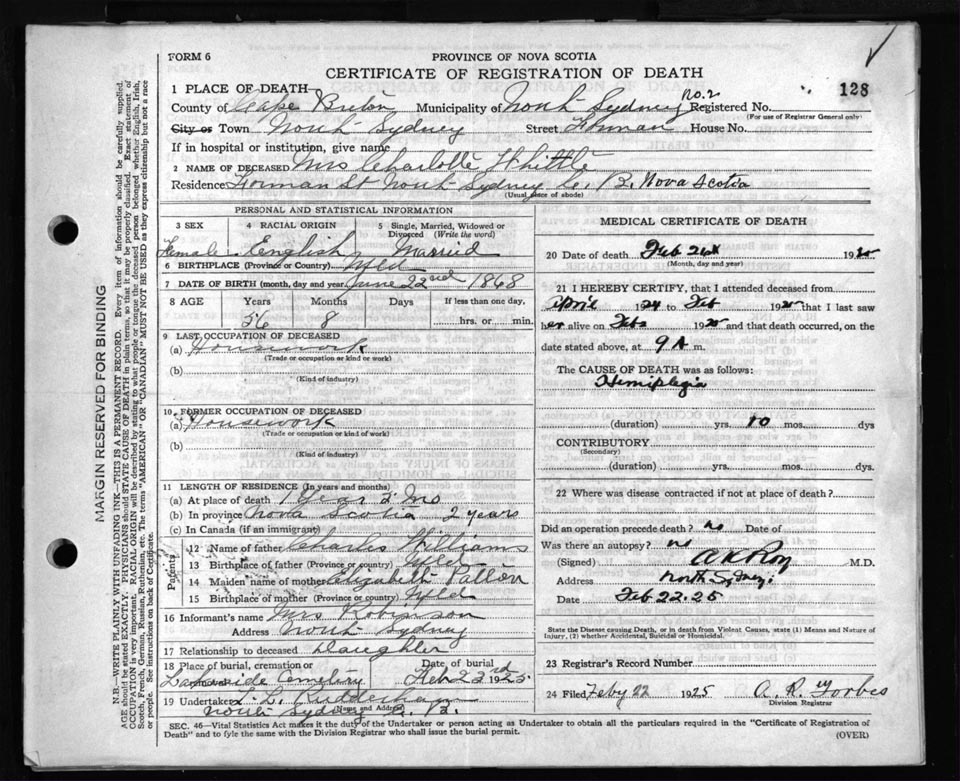 FORM 6
PROVINCE OF NOVA SCOTIA
CERTIFICATE OF REGISTRATION OF DEATH
128
1 PLACE OF DEATH—
County of Cape Breton Municipality of North Sydney No. 2 Registered No.
(For use of Registrar General only)
City or Town North Sydney Street Forman House No.
If in hospital or institution, give name
2 NAME OF DECEASED Mrs Charlotte Whittle
Residence Forman St North Sydney Co. B. Nova Scotia
(Usual place of abode)
PERSONAL AND STATISTICAL INFORMATION
3 SEX 4 RACIAL ORIGIN 5 Single, Married, Widowed or Divorced (Write the word)
Female English Married
6 BIRTHPLACE (Province or Country) Nfld
7 DATE OF BIRTH (month, day and year) June 22nd 1868
8 AGE Years Months Days If less than one day,
56 8 hrs. or min.
9 LAST OCCUPATION OF DECEASED
(a) Housework
(Trade or occupation or kind of work)
(b)
(Kind of industry)
10 FORMER OCCUPATION OF DECEASED
(a) Housework
(Trade or occupation or kind of work)
(b)
(Kind of industry)
11 LENGTH OF RESIDENCE (In years and months)
(a) At place of death 1 Year 2 Mo
(b) In province Nova Scotia 2 years
(c) In Canada (if an immigrant)
Parents
12 Name of father Charles Williams
13 Birthplace of father (Province or country) Nfld
14 Maiden name of mother Elizabeth
15 Birthplace of mother (Province or country) Nfld
16 Informant's name Mrs Robinson
Address North Sydney
17 Relationship to deceased Daughter
18 Place of burial, cremation or Date of burial
Cemetery Feb 23rd 1925
19 Undertaker L. L.
(Name and Address)
North Sydney C. B.
MEDICAL CERTIFICATE OF DEATH
20 Date of death Feb 1925
(Month, day and year)
21 I HEREBY CERTIFY, that I attended deceased from
April 1924 to Feb 1925 that I last saw
her alive on Feb 1925 and that death occurred, on the
date stated above, at 9 A m.
The CAUSE OF DEATH was as follows:
Hemiplegia
(duration) yrs. 10 mos. dys
CONTRIBUTORY
(Secondary)
(duration) yrs. mos. dys.
22 Where was disease contracted if not at place of death?
Did an operation precede death? no Date of
Was there an autopsy? no
(Signed) M.D.
Address North Sydney
Date Feb. 22. 25
State the Disease causing Death, or in death from Violent Causes, state (1) Means and Nature of
Injury, (2) whether Accidental, Suicidal or Homicidal.
23 Registrar's Record Number
24 Filed Feby 22 1925 A. R. Forbes
Division Registrar
SEC. 46—Vital Statistics Act makes it the duty of the Undertaker or person acting as Undertaker to obtain all the particulars required in the "Certificate of Registration of
Death" and to fyle the same with the Division Registrar who shall issue the burial permit.
(OVER)
MARGIN RESERVED FOR BINDING
N.B.—WRITE PLAINLY WITH UNFADING INK—THIS IS A PERMANENT RECORD. Every item of information should be carefully supplied.
AGE should be stated EXACTLY. PHYSICIANS should STATE CAUSE OF DEATH in plain terms, so that it may be properly classified. Exact statement of
OCCUPATION is very important. RACIAL ORIGIN will be described by stating to what people or tongue the deceased person belonged whether English, Irish,
Scotch, French, German, Russian, Ruthenian, etc. The terms "AMERICAN" or "CANADIAN" MUST NOT BE USED as they express citizenship but not a race
or people. See instructions on back of Certificate.